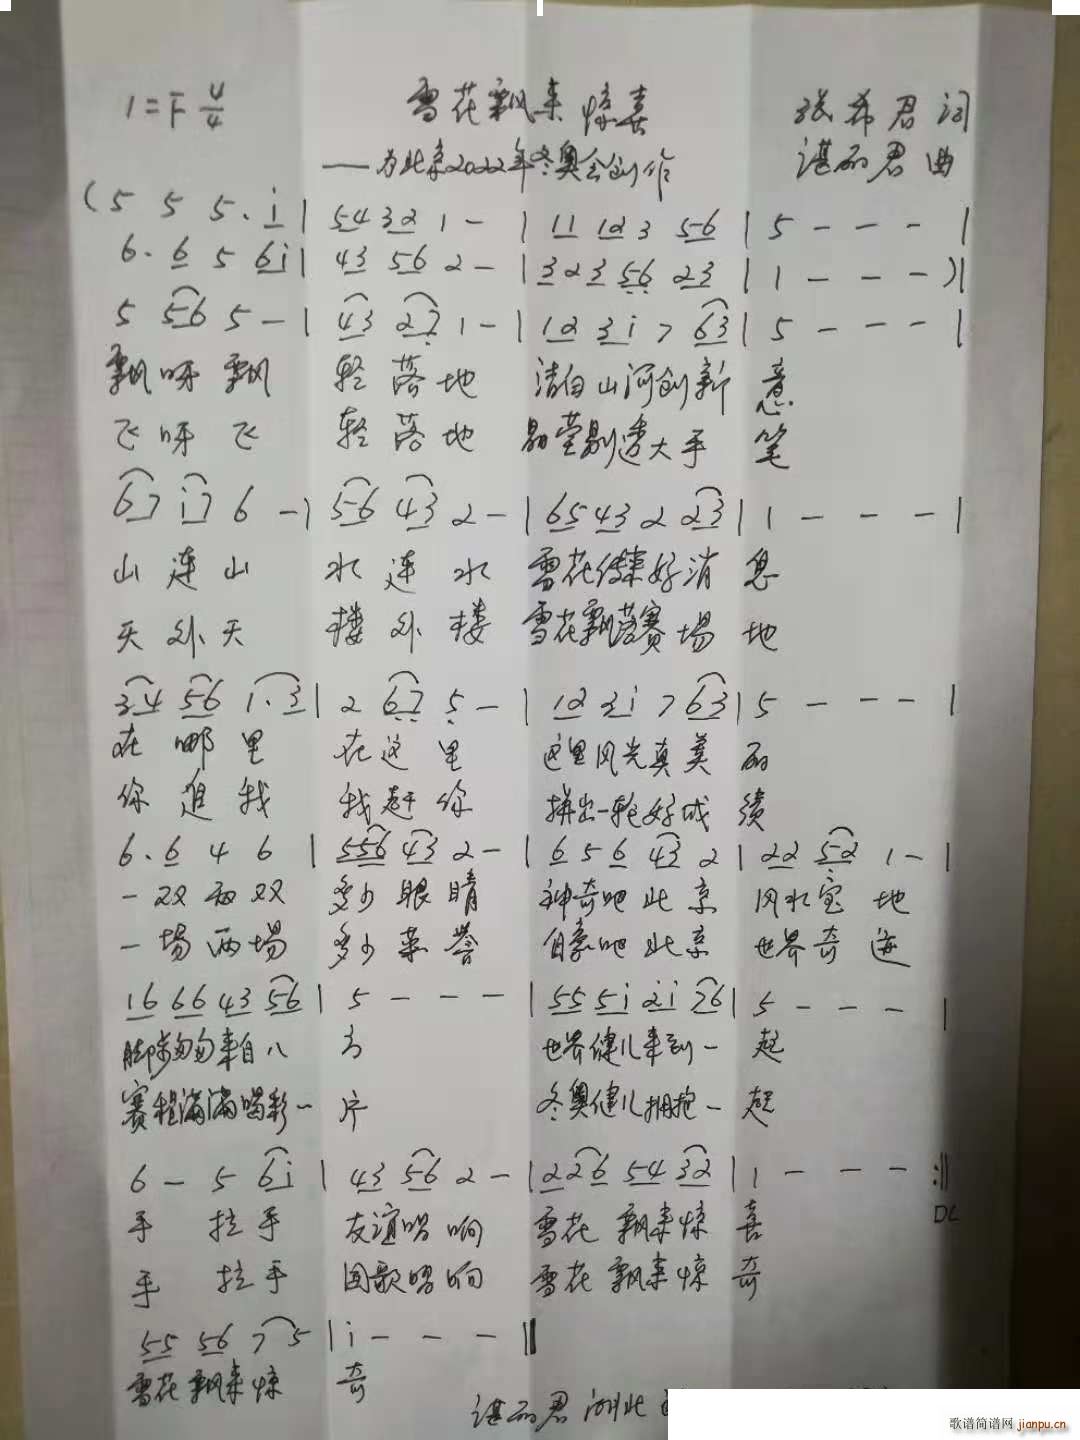 1=F 4/4 雪花飘来惊喜 张希君 词
——为北京2022年冬奥会创作 谌丽君 曲
(5 5 5. i | 54 32 1 - | 11 12 3 56 | 5 - - - |
6. 6 5 6i | 43 56 2 - | 323 56 23 | 1 - - - )|
5 56 5 - | 43 27 1 - | 12 3i 7 63 | 5 - - - |
飘呀飘 轻落地 洁白山河创新意
飞呀飞 轻落地 晶莹剔透大手笔
67 i7 6 - | 56 43 2 - | 65 43 2 23 | 1 - - - |
山连山 水连水 雪花传来好消息
天外天 楼外楼 雪花飘落赛场地
34 56 1.3 | 2 67 5 - | 12 3i 7 63 | 5 - - - |
在哪里 在这里 这里风光真美丽
你追我 我赶你 拼出一轮好成绩
6. 6 4 6 | 556 43 2 - | 6 5 6 43 2 | 22 52 1 - |
一双两双 多少眼睛 神奇吧北京 风水宝地
一场两场 多少荣誉 自豪吧北京 世界奇迹
16 66 43 56 | 5 - - - | 55 5i 2i 76 | 5 - - - |
脚步匆匆来自八方 世界健儿来到一起
赛程满满喝彩一片 冬奥健儿拥抱一起
6 - 5 6i | 43 56 2 - | 226 54 32 | 1 - - - :||
D.C
手拉手 友谊唱响 雪花飘来惊喜
手拉手 国歌唱响 雪花飘来惊奇
55 56 7 5 | i - - - ||
雪花飘来惊奇
谌丽君 湖北
歌谱简谱网 jianpu.cn